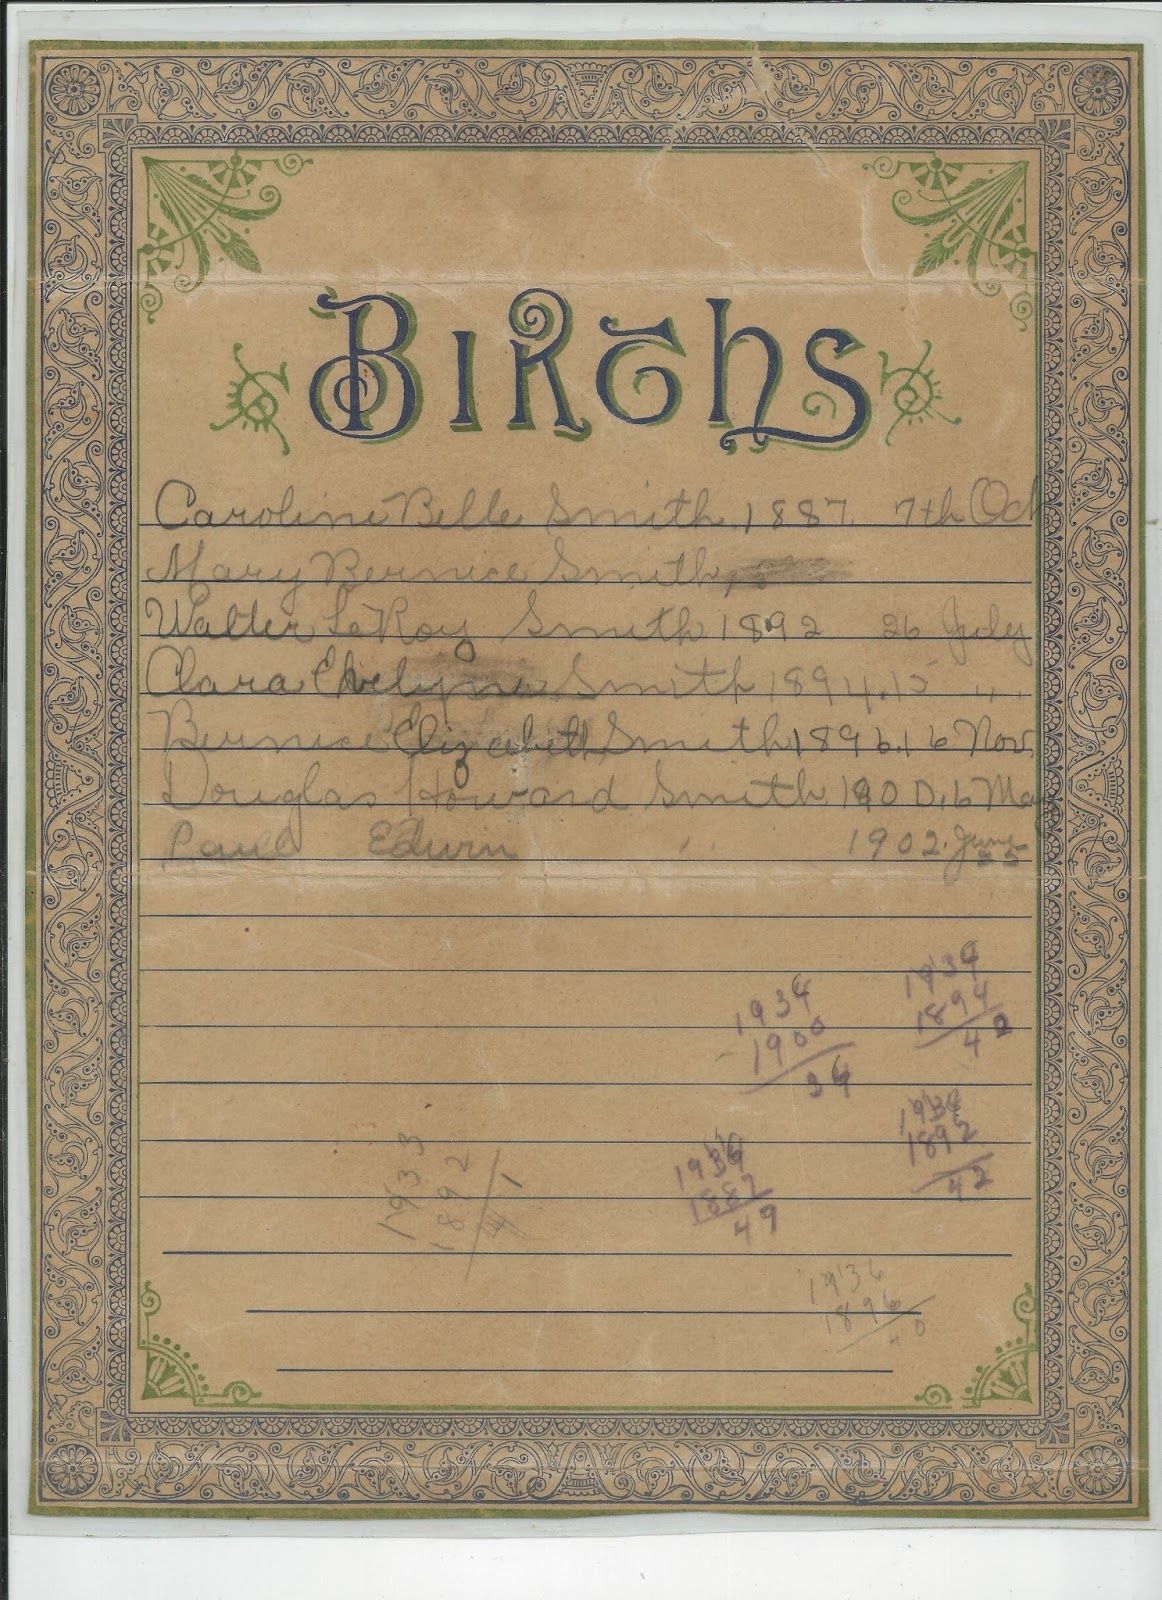 Births
Caroline Belle Smith 1887. 7th Oct
Mary Bernice Smith
Walter LeRoy Smith 1892 26 July
Clara Evelyne Smith 1894. 15 " .
Bernice Elizabeth Smith 1896. 16 Nov.
Douglas Howard Smith 1900. 6 May
Paul Edwin " 1902. June
1934
1894
40
1934
1900
34
1934
1892
42
1936
1887
49
1933
1892
41
1936
1896
40